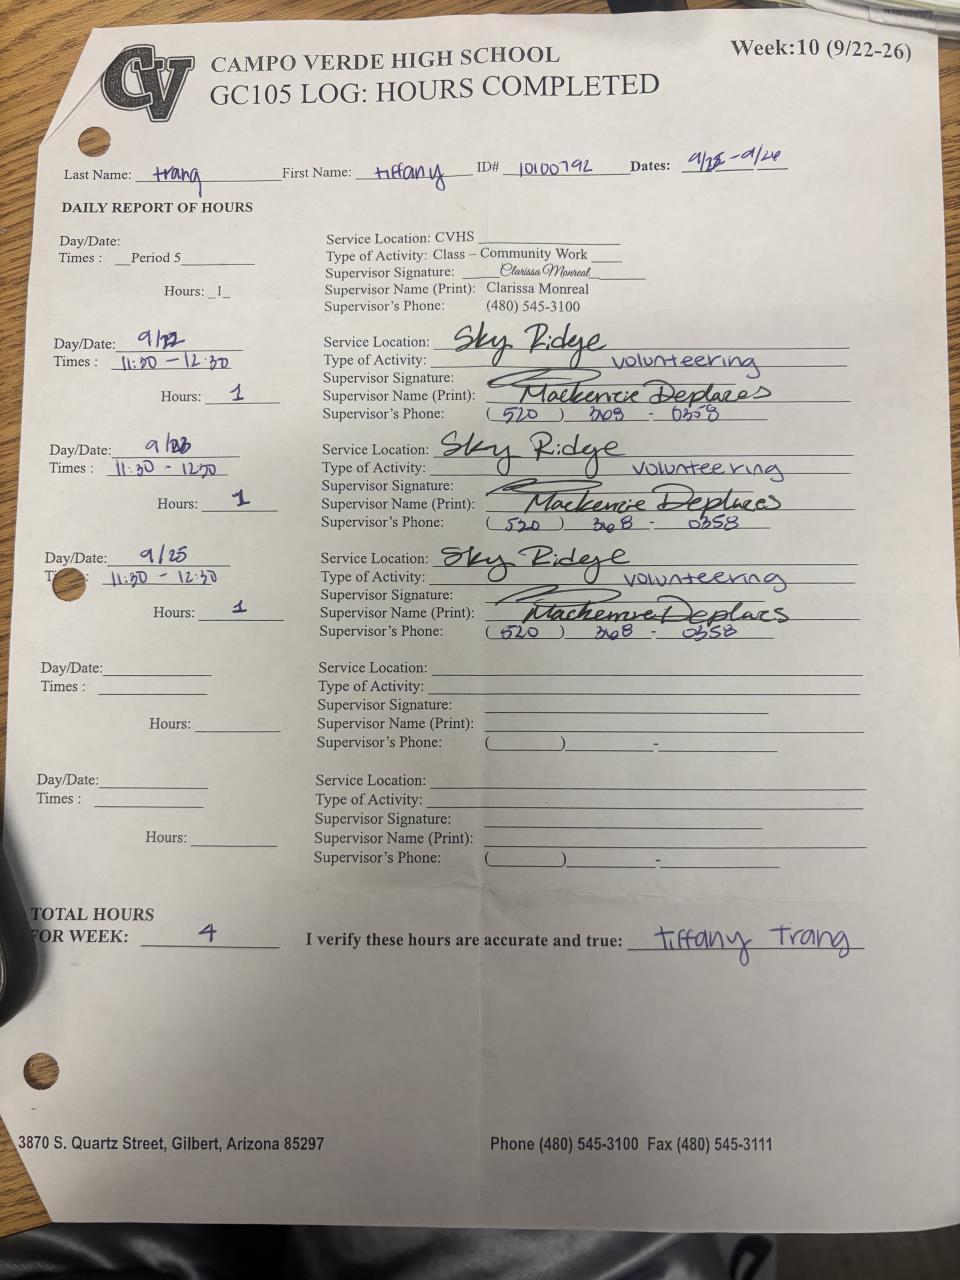 CV
CAMPO VERDE HIGH SCHOOL
Week:10 (9/22-26)
GC105 LOG: HOURS COMPLETED
Last Name: trang First Name: tiffany ID# 10100792 Dates: 9/22 - 9/26
DAILY REPORT OF HOURS
Day/Date: Service Location: CVHS
Times : Period 5 Type of Activity: Class – Community Work
Supervisor Signature: Clarissa Monreal
Hours: 1 Supervisor Name (Print): Clarissa Monreal
Supervisor's Phone: (480) 545-3100
Day/Date: 9/22 Service Location: Sky Ridge
Times : 11:30 - 12:30 Type of Activity: volunteering
Supervisor Signature:
Hours: 1 Supervisor Name (Print): Mackenzie Deplazes
Supervisor's Phone: (520) 368 - 0358
Day/Date: 9/23 Service Location: Sky Ridge
Times : 11:30 - 12:30 Type of Activity: volunteering
Supervisor Signature:
Hours: 1 Supervisor Name (Print): Mackenzie Deplazes
Supervisor's Phone: (520) 368 - 0358
Day/Date: 9/25 Service Location: Sky Ridge
11:30 - 12:30 Type of Activity: volunteering
Supervisor Signature:
Hours: 1 Supervisor Name (Print):
Supervisor's Phone: (520) 368 - 0358
Day/Date: Service Location:
Times : Type of Activity:
Supervisor Signature:
Hours: Supervisor Name (Print):
Supervisor's Phone: ( ) -
Day/Date: Service Location:
Times : Type of Activity:
Supervisor Signature:
Hours: Supervisor Name (Print):
Supervisor's Phone: ( ) -
TOTAL HOURS
FOR WEEK: 4 I verify these hours are accurate and true: tiffany trang
3870 S. Quartz Street, Gilbert, Arizona 85297 Phone (480) 545-3100 Fax (480) 545-3111